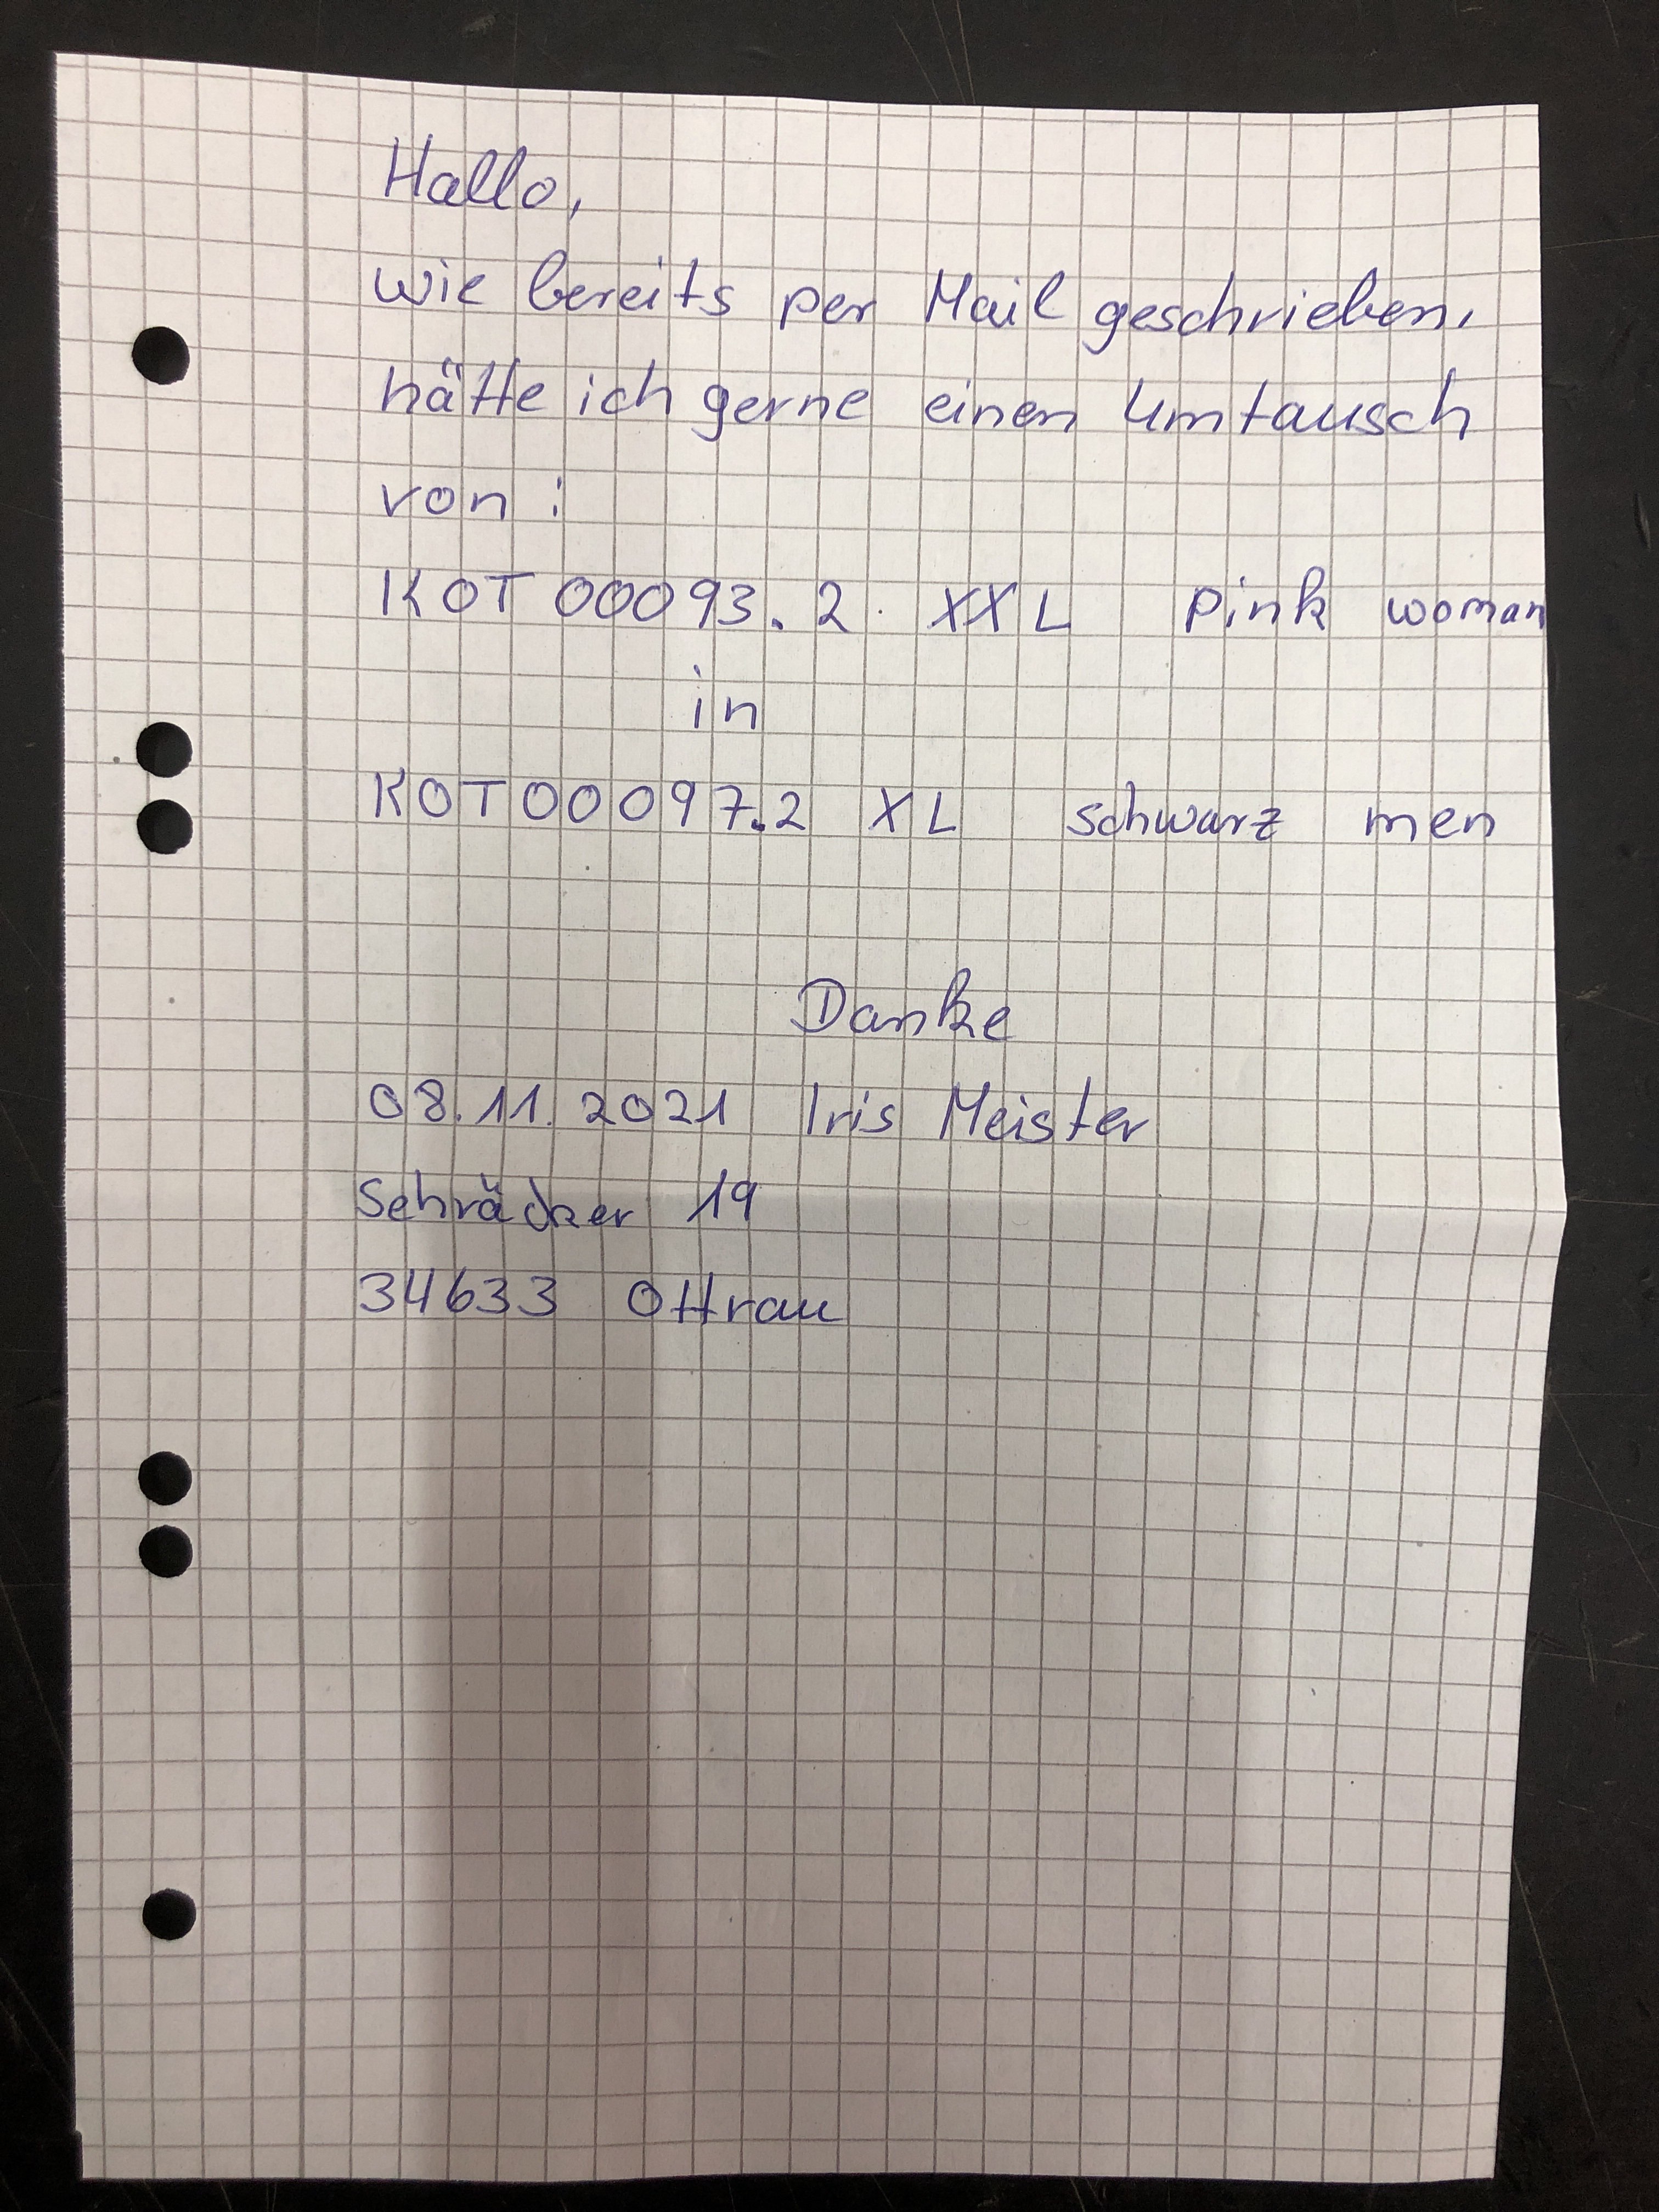 Hallo,
wie bereits per Mail geschrieben,
hätte ich gerne einen Umtausch
von :
KOT 00093.2. XXL pink woman
in
KOT00097.2 XL schwarz men
Danke
08.11.2021 Iris Meister
19
34633 Ottrau